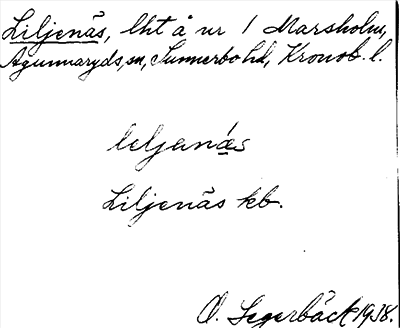 Liljenäs, lht å nr 1 Marsholm,
Agunnaryds sn, Sunnerbo hd, Kronob. l.
leljanæs
Liljenäs kb.
O. Segerbäck 1938.